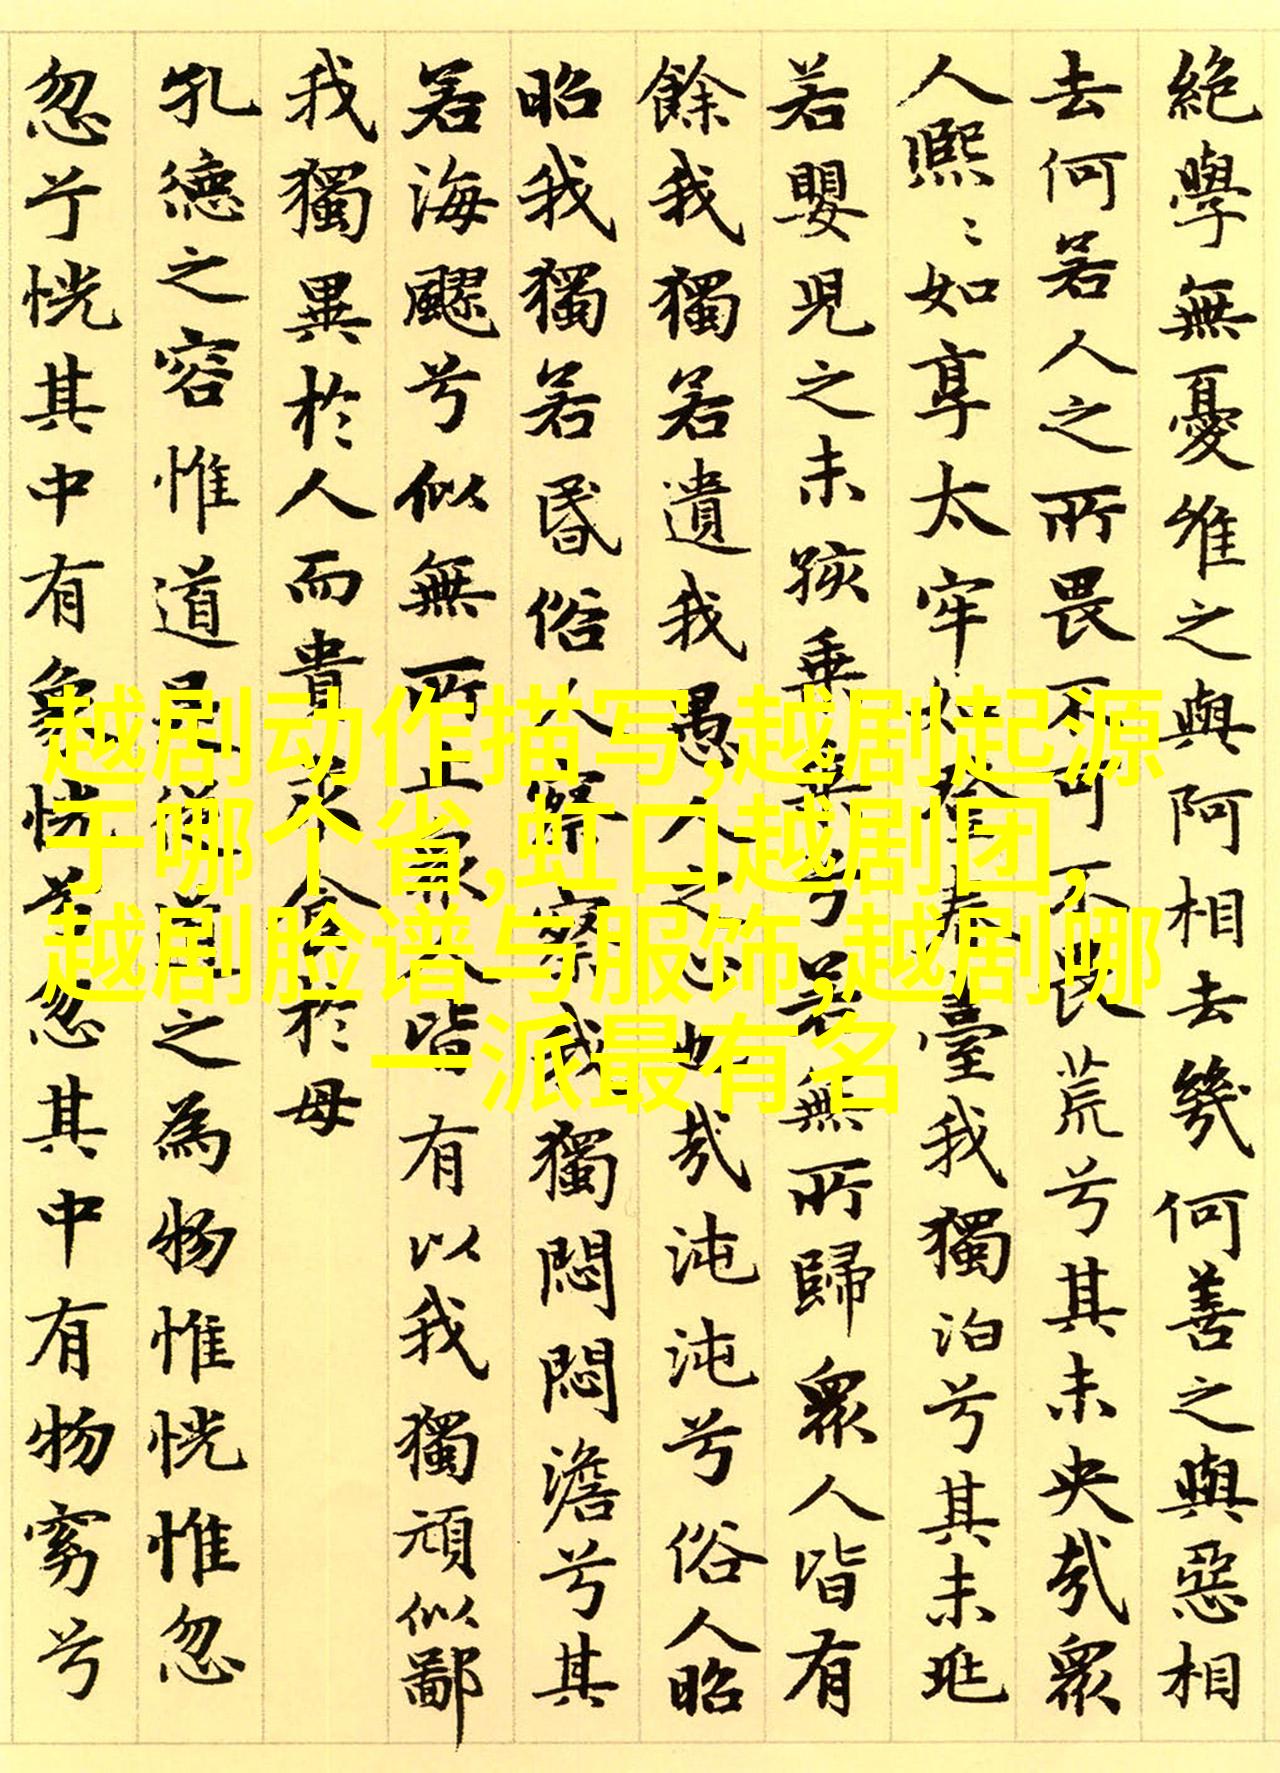 絶學無憂唯之與阿相去幾何善之與惡相
去何若人之所畏不可不畏荒兮其未央哉衆
人熙〻如享太牢如登春臺我獨泊兮其未兆
若嬰兒之未孩乗乗兮若無所歸衆人皆有
餘我獨若遺我愚人之心也哉沌沌兮俗人昭
昭我獨若昏俗人察察我獨悶悶澹兮其
若海飂兮似無所止衆人皆有以我獨頑似鄙
我獨異於人而貴求食於母
孔德之容惟道是從道之為物惟恍惟忽
忽兮恍其中有象恍兮忽其中有物窈兮
越剧动作描写,越剧起源
于哪个省,虹口越剧团,
越剧脸谱与服饰,越剧哪
一派最有名